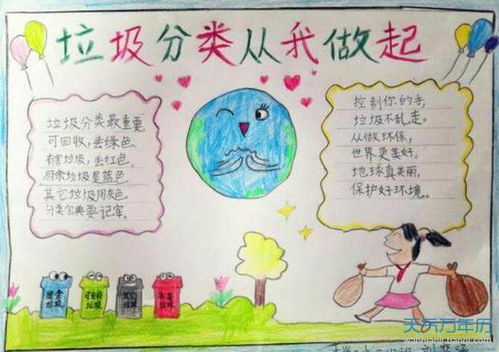 垃圾分类从我做起
垃圾分类最重要,
可回收,丢绿色。
有害垃圾,丢红色。
厨余垃圾是蓝色
其它垃圾用灰色
分类宝典要记牢。
控制你的手,
垃圾不乱走。
从做环保,
世界更美好。
地球真美丽,
保护好环境。
可回收
垃圾
其它
垃圾
有害
垃圾
天气万年历
wannianli.tianqi.com